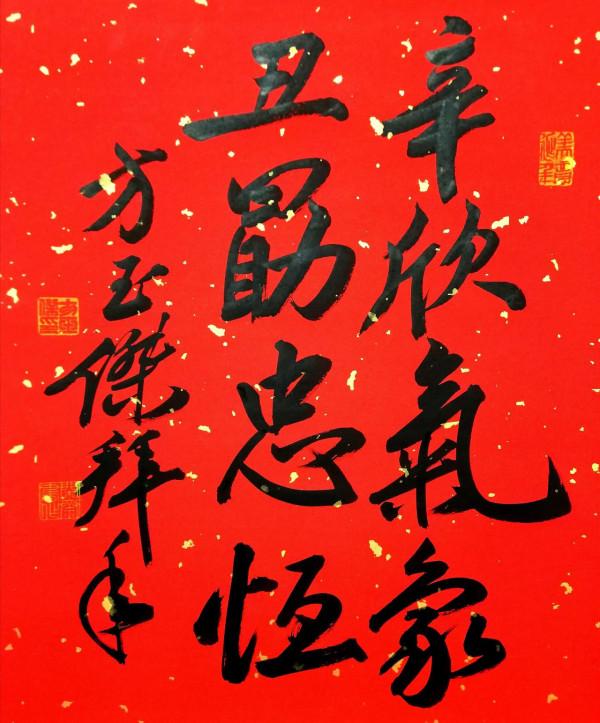 辛欣氣象
丑勖忠恆
方玉傑拜年